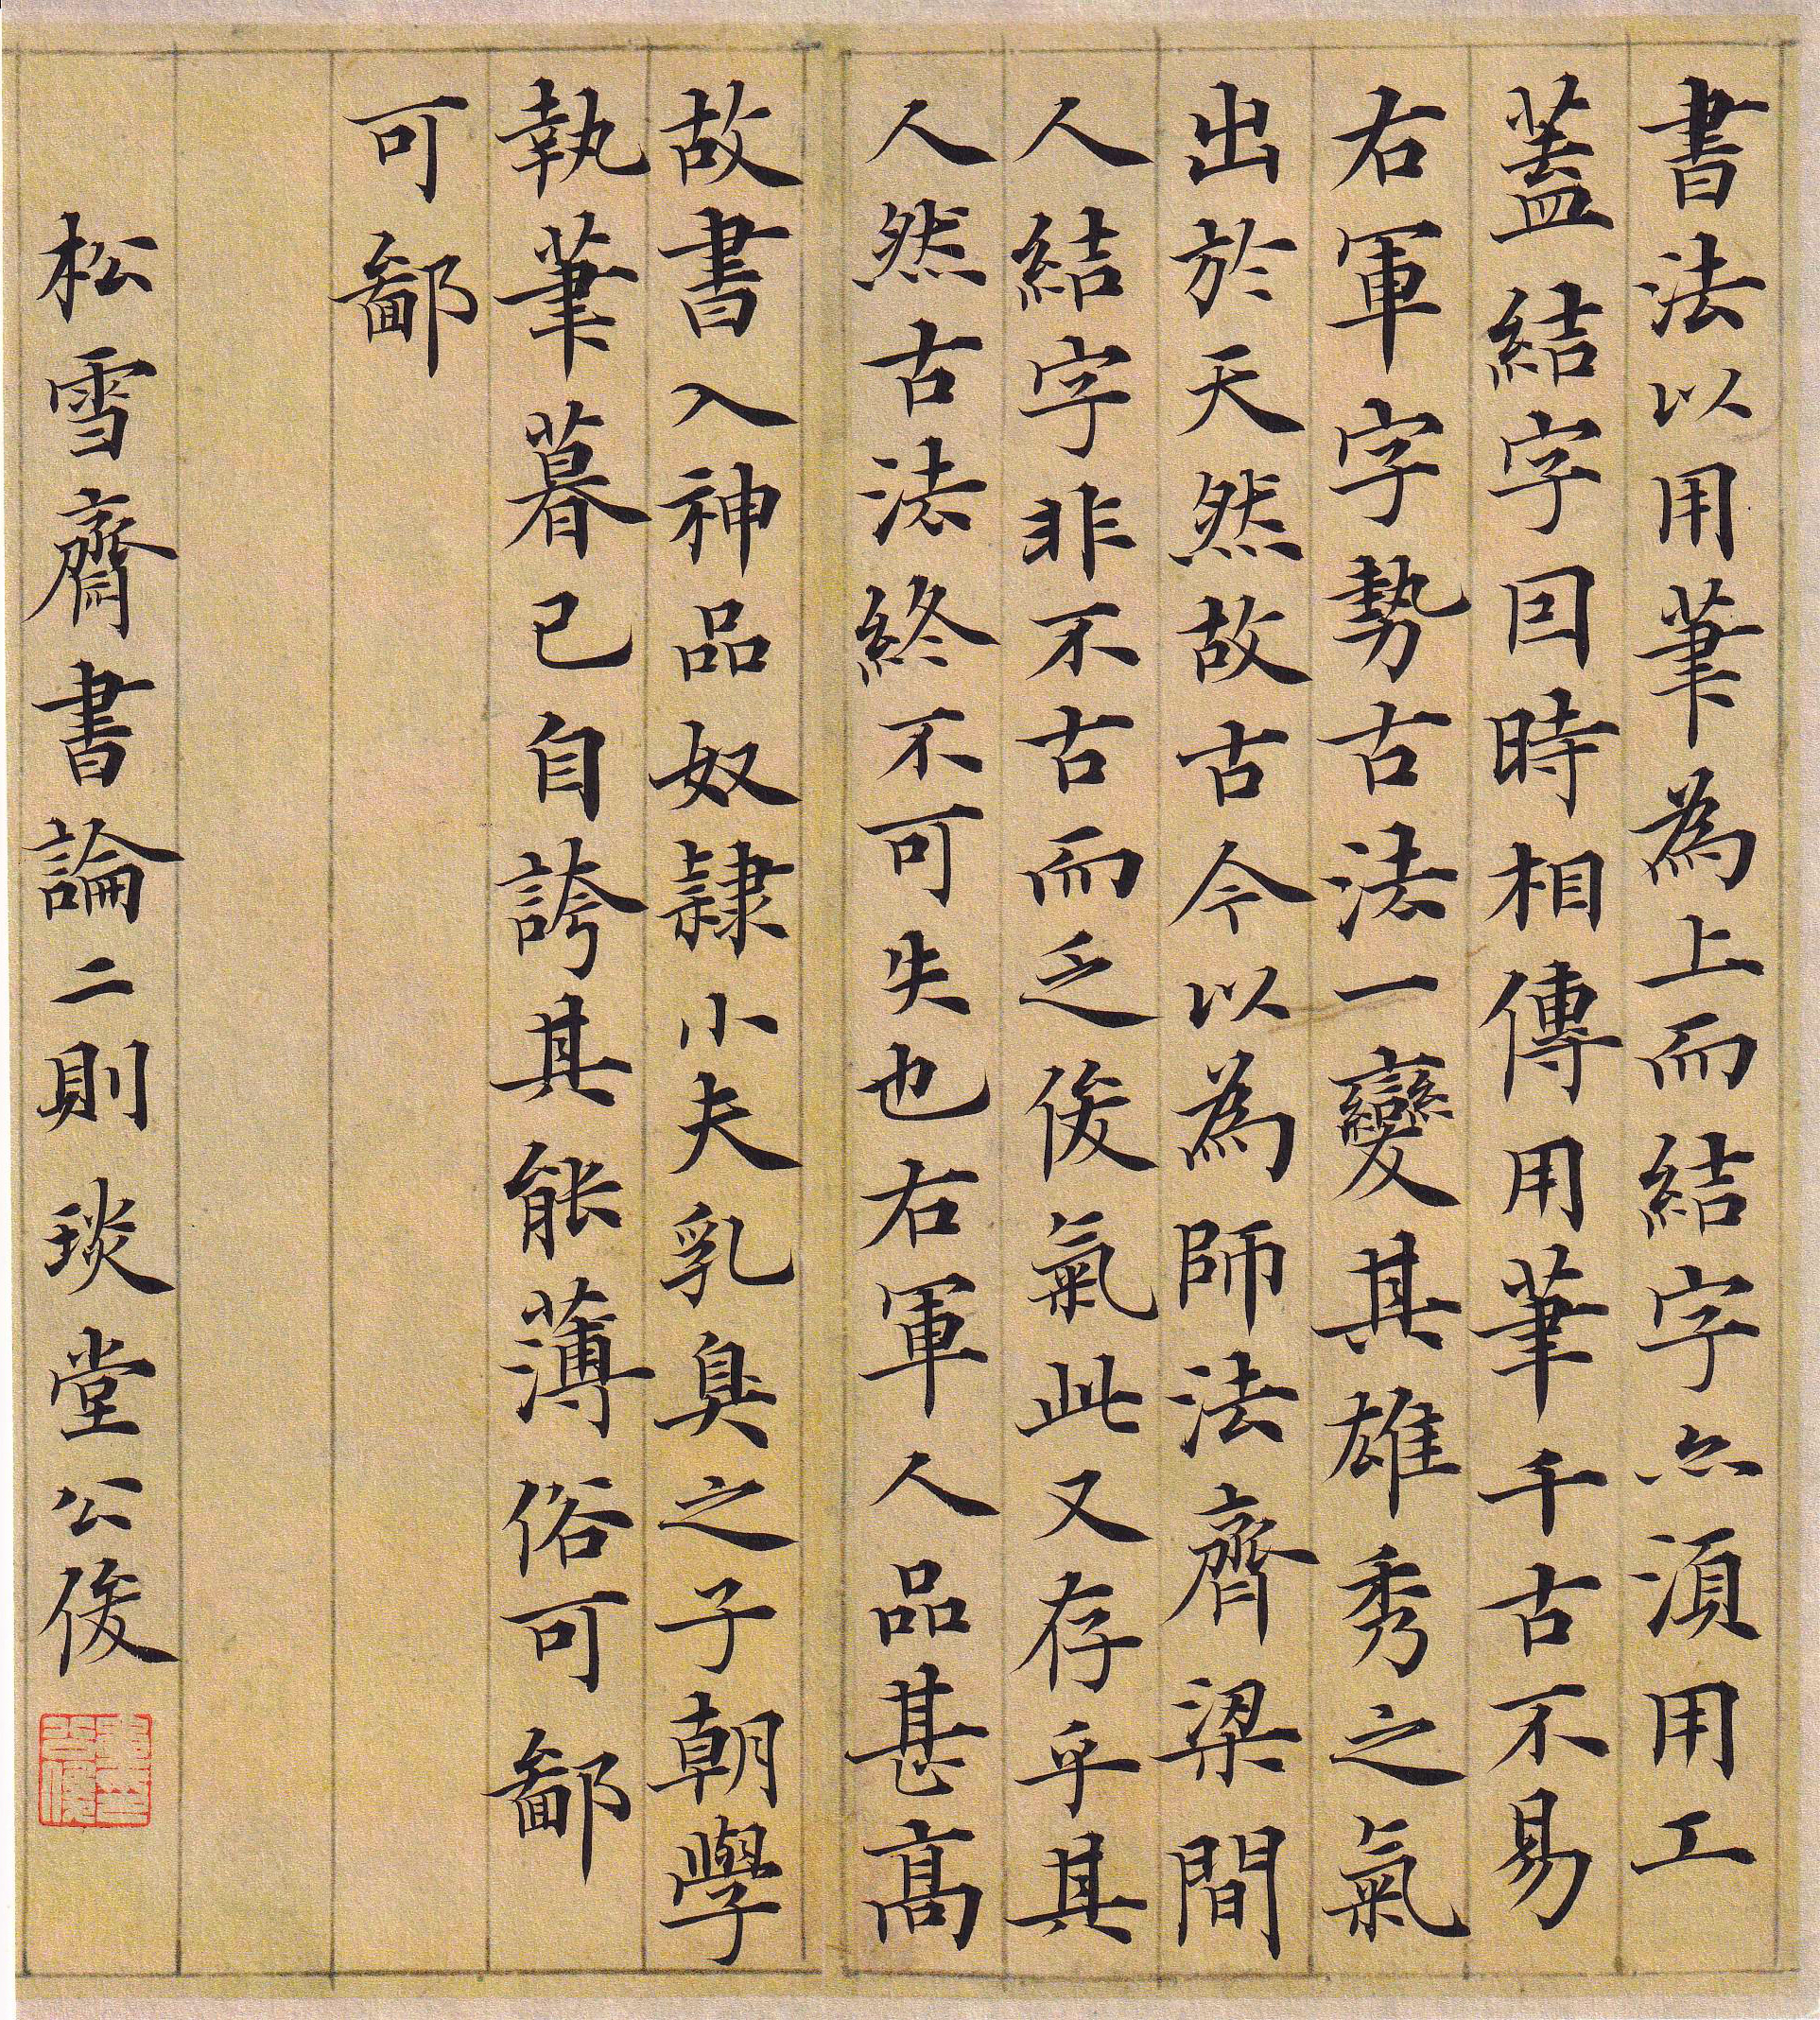 書法以用筆為上而結字亦須用工
蓋結字因時相傳用筆千古不易
右軍字勢古法一變其雄秀之氣
出於天然故古今以為師法齊梁間
人結字非不古而乏俊氣此又存乎其
人然古法終不可失也右軍人品甚高
故書入神品奴隸小夫乳臭之子朝學
執筆暮已自誇其能薄俗可鄙
可鄙
松雪齋書論二則琰堂公俊